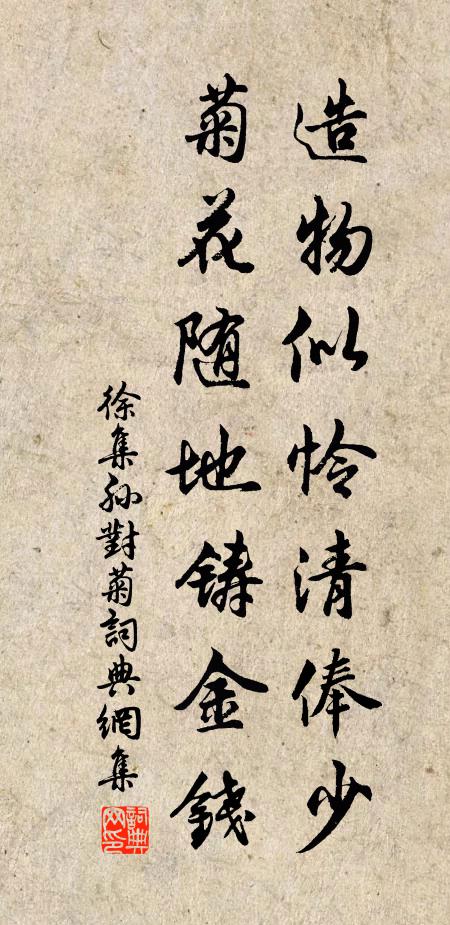 造物似怜清俸少
菊花随地铸金钱
徐集孙對菊詞典網集
詞典網印